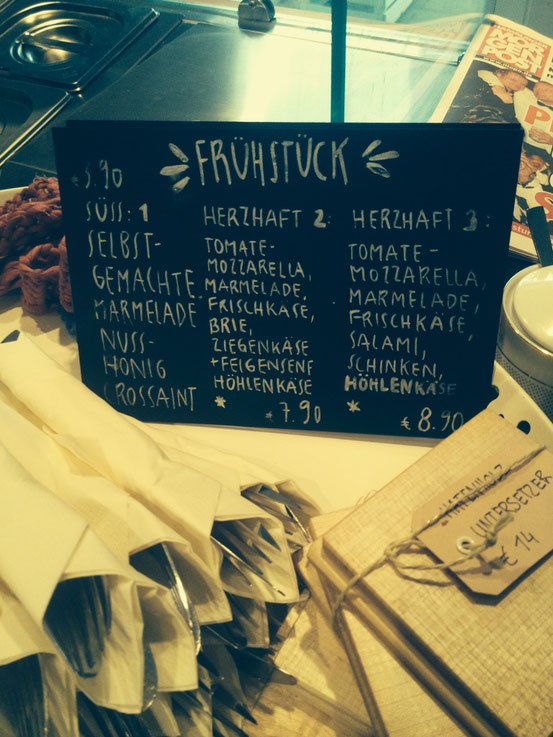 FRÜHSTÜCK
€5.90
SÜSS: 1
SELBST-
GEMACHTE
MARMELADE
NUSS-
HONIG
CROSSAINT
HERZHAFT 2:
TOMATE-
MOZZARELLA,
MARMELADE,
FRISCHKÄSE,
BRIE,
ZIEGENKÄSE
+FEIGENSENF
HÖHLENKÄSE
* €7.90
HERZHAFT 3:
TOMATE-
MOZZARELLA,
MARMELADE,
FRISCHKÄSE,
SALAMI,
SCHINKEN,
HÖHLENKÄSE
* €8.90
UNTERSETZER
€ 14